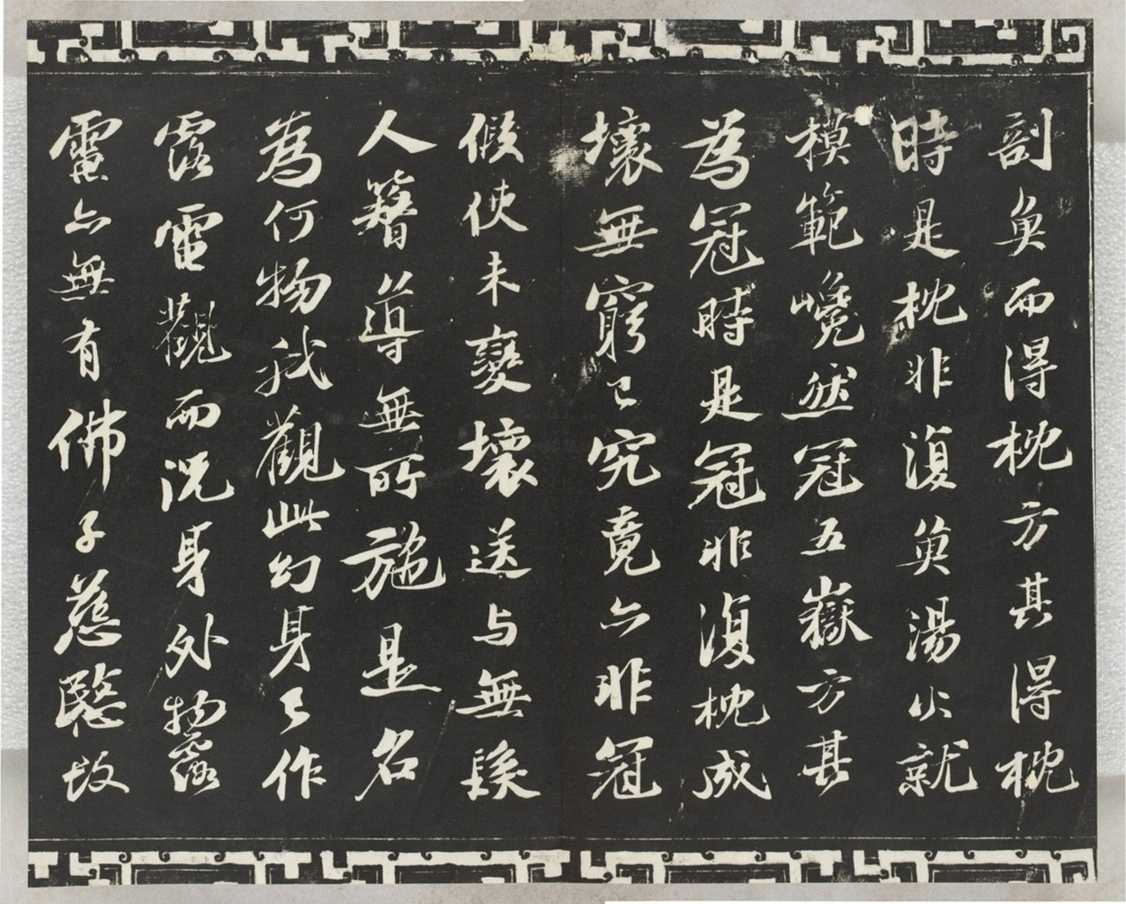 剖魚而得枕方其得枕
時是枕非復魚湯火就
模範巉然冠五嶽方其
為冠時是冠非復枕成
壞無窮已究竟亦非冠
假使未變壞送与無髮
人簪導無所施是名
為何物我觀此幻身已作
露電觀而況身外物露
電亦無有佛子慈愍故